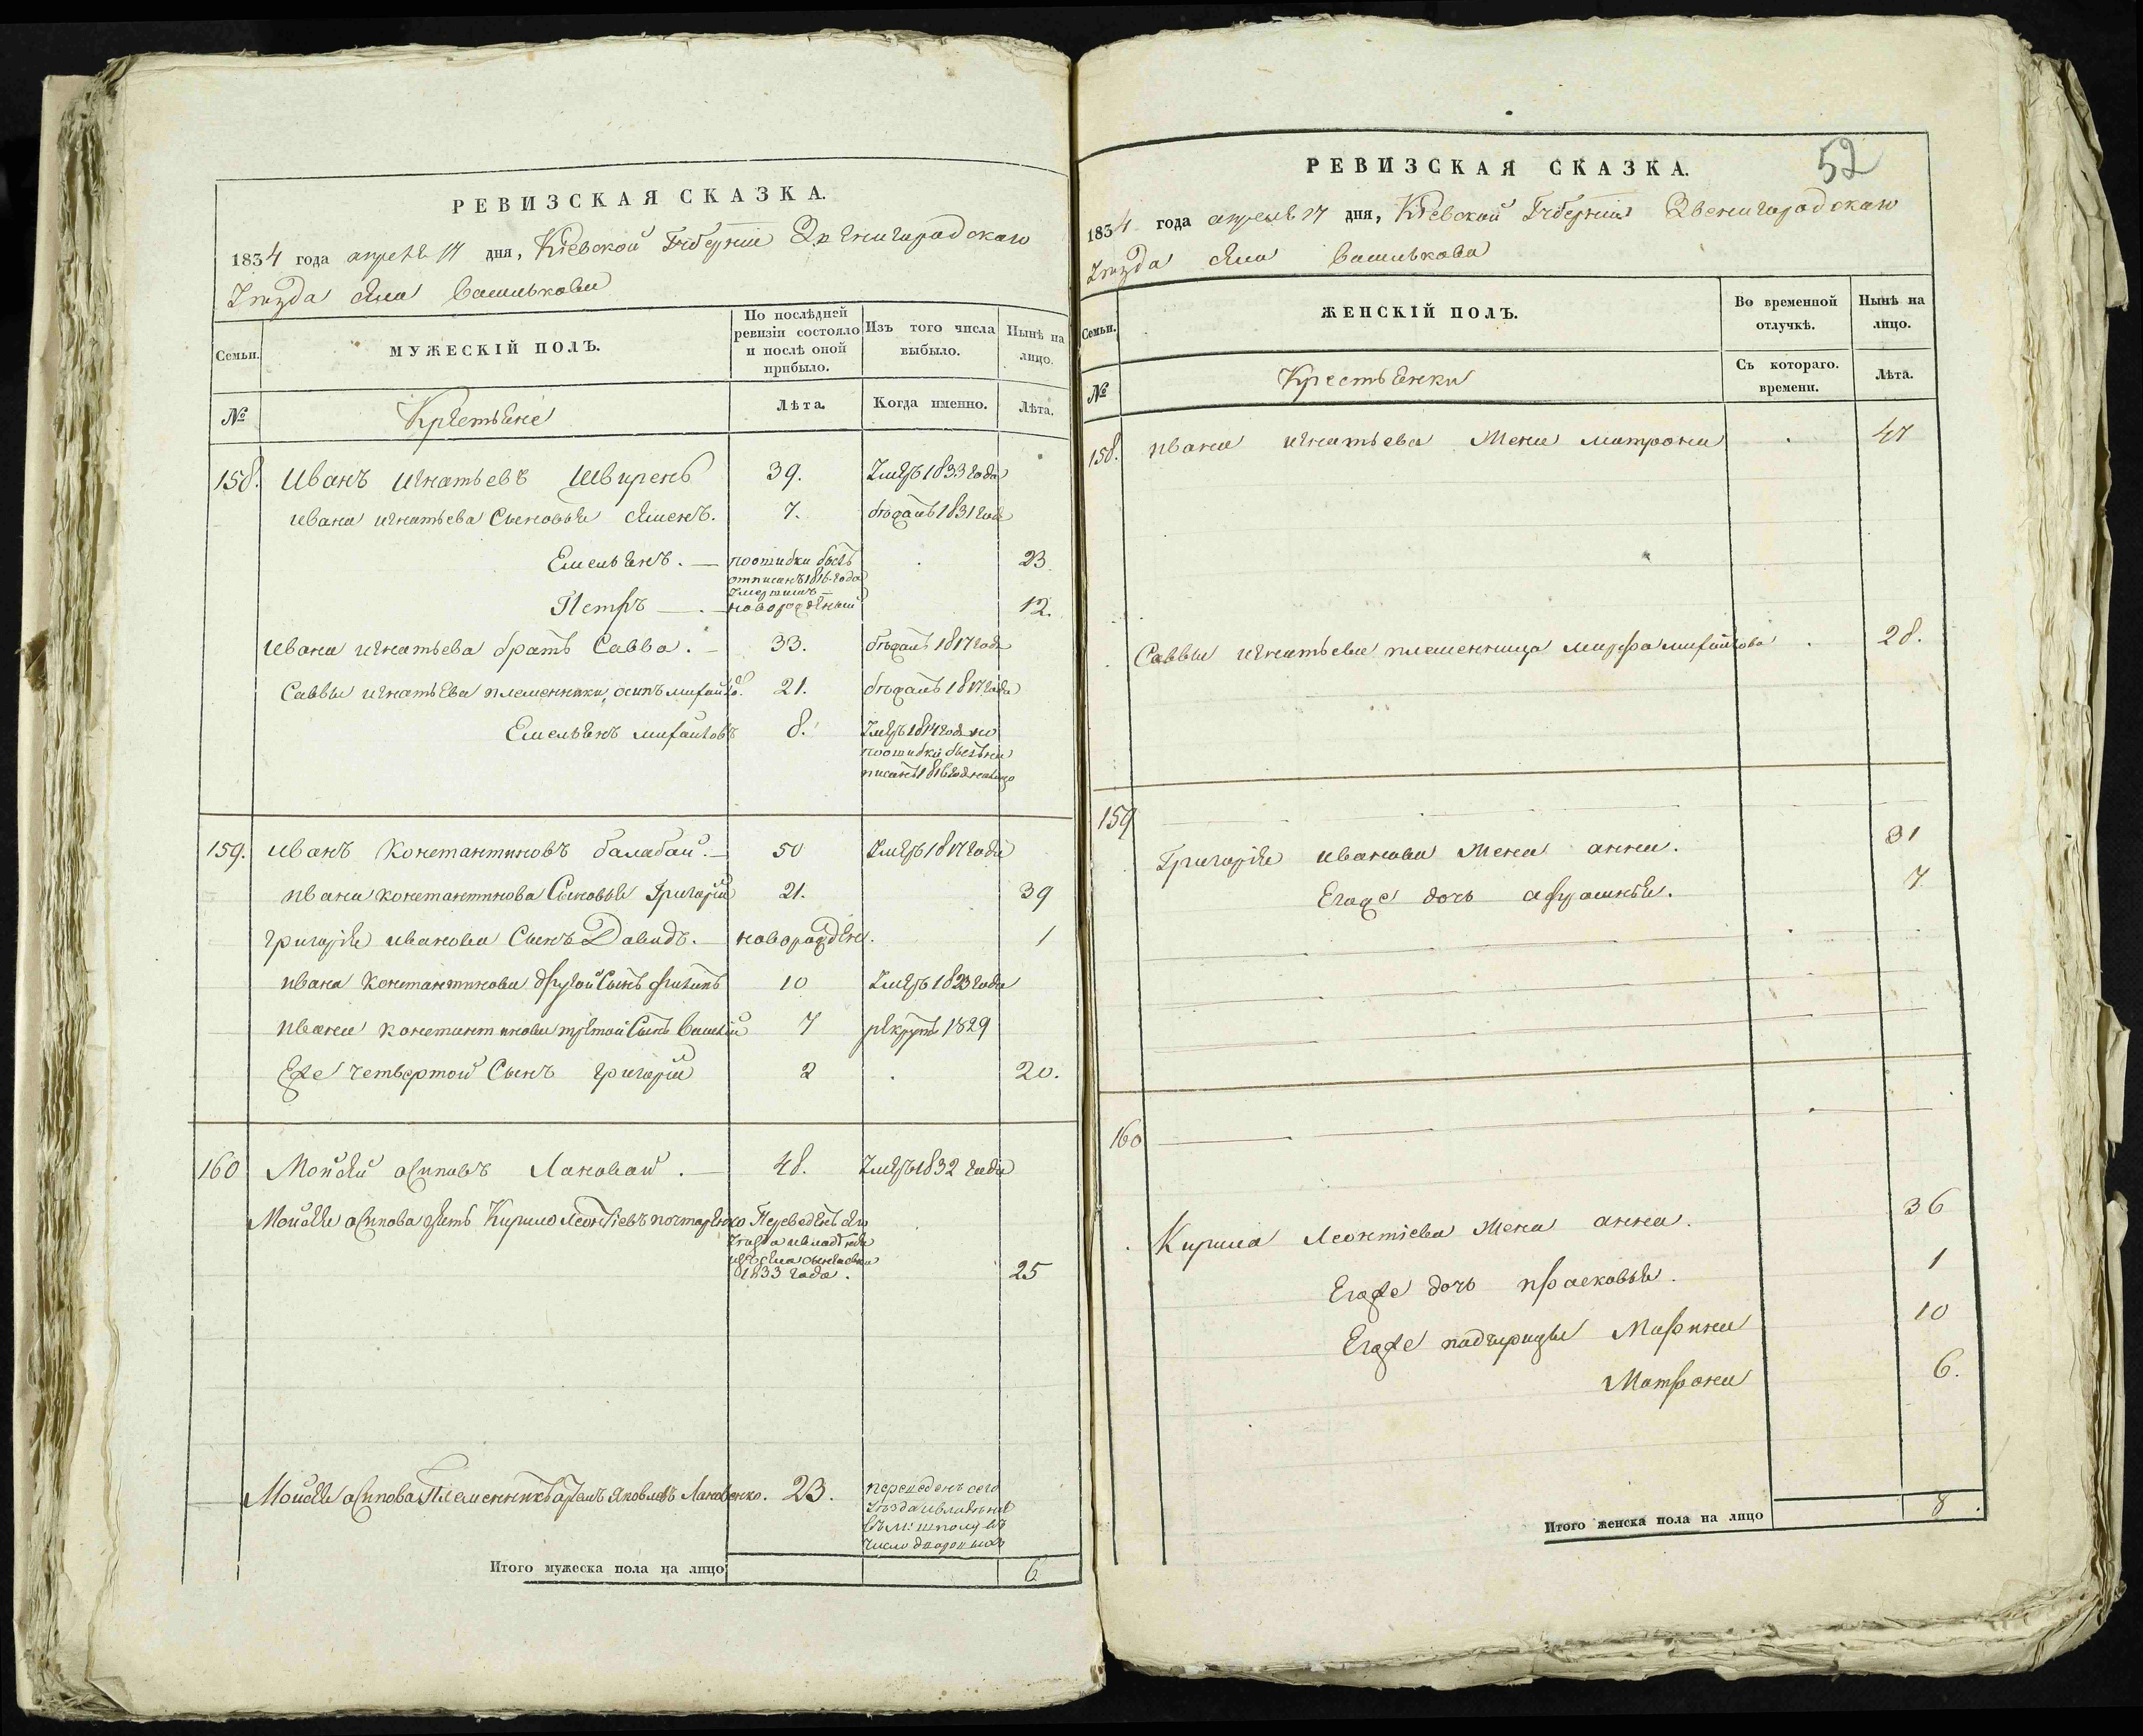 РЕВИЗСКАЯ СКАЗКА.
1834 года апреля 17 дня, Кіевской Губерніи Звенигородскаго
Уезда села Василькова
Семьи.
МУЖЕСКІЙ ПОЛЪ.
По послѣдней ревизіи состояло и послѣ оной прибыло.
Изъ того числа выбыло.
Нынѣ на лицо.
№
Крестьяне
Лѣта.
Когда именно.
Лѣта.
158. Иванъ игнатьевъ Швирень 39. Умеръ 1833 года
ивана игнатьева Сыновья Семенъ. 7. бежалъ 1831 года
Емельянъ. — поошибки былъ отписанъ 1816 года умершимъ 23.
Петръ — новорожденый 12.
ивана игнатьева братъ Савва. 33. бежалъ 1817 года
Саввы игнатьева племенники, осипъ михайло. 21. бежалъ 1817 года
Емельянъ михайловъ 8. Умеръ 1814 года но
поошибки былъ на
писанъ 1816 году на лицо
159. иванъ Константиновъ балабай. 50 Умеръ 1817 года
ивана константинова Сыновья Григорій 21. 39
григорія иванова Сынъ Давидъ. новорожден. 1
ивана Константинова другой Сынъ филипъ 10 Умеръ 1823 года
ивана константинова третой Сынъ Василій 7 рекрутъ 1829
Его же четвертой Сынъ григорій 2 20.
160 Мойсей осиповъ Лановой. 48. Умеръ 1832 года
Мойсея осипова зять Кирило Леонтіевъ почтаренко Переведенъ сего
Уезда
1833 года. 25
Мойсея осипова Племенникъ Яковлевъ Лановенко. 23. переведенъ сего
Уезда
число дворовыхъ
Итого мужеска пола на лицо 6
52
РЕВИЗСКАЯ СКАЗКА.
1834 года апреля 17 дня, Кіевской Губерніи Звенигородскаго
Уезда села Василькова
Семьи.
ЖЕНСКІЙ ПОЛЪ.
Во временной отлучкѣ.
Нынѣ на лицо.
№
Крестьянки
Съ котораго. времени.
Лѣта.
158. ивана игнатьева Жена матрона 47
Саввы игнатьева племенница марфа михайлова 28.
159
Григорія иванова Жена анна. 31
Егоже дочь афросинья. 7
160
Кирила Леонтіева Жена анна. 36
Егоже дочь прасковья. 1
Егоже падчерицы Марина 10
Матрона 6.
Итого женска пола на лицо 8